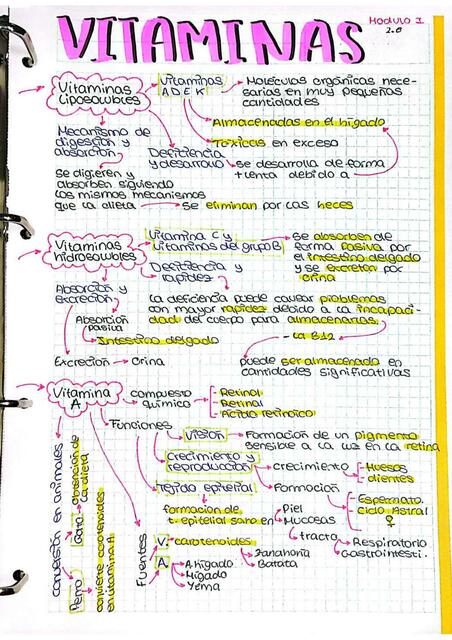 VITAMINAS
Modulo I
2.0
Vitaminas
Liposolubles
Vitaminas
A D E K
Moléculas orgánicas nece-
sarias en muy pequeñas
cantidades
Almacenadas en el hígado
Tóxicas en exceso
Mecanismo de
digestión y
absorción
Deficiencia
y desarrollo
se desarrolla de forma
+ lenta debido a
Se digieren y
absorben siguiendo
los mismos mecanismos
que la dieta
Se eliminan por las heces
Vitaminas
hidrosolubles
Vitamina C y
vitaminas del grupo B
se absorben de
forma pasiva por
el intestino delgado
y se excretan por
orina
Deficiencia y
rapidez
Absorción y
excreción
La deficiencia puede causar problemas
con mayor rapidez debido a la incapaci-
dad del cuerpo para almacenarlas,
Absorción
pasiva
Intestino delgado
- La B12
Excreción → Orina
puede ser almacenada en
cantidades significativas
Vitamina
A
compuesto
químico
- Retinol
- Retinal
- Ácido retinoico
Funciones
Visión
Formación de un pigmento
sensible a la luz en la retina
Crecimiento y
reproducción
crecimiento
- Huesos
- dientes
Tejido epitelial
Formación
- Espermato.
- Ciclo Astral
♀
formación de
t. epitelial sano en
Piel
Mucosas
tracto
Respiratorio
Gastrointesti.
conversión en animales
Gato
obtención de
la dieta
Perro
convierte carotenoides
en vitamina A
Fuentes
V.
carotenoides
Zanahoria
Batata
A.
A. hígado
Hígado
Yema